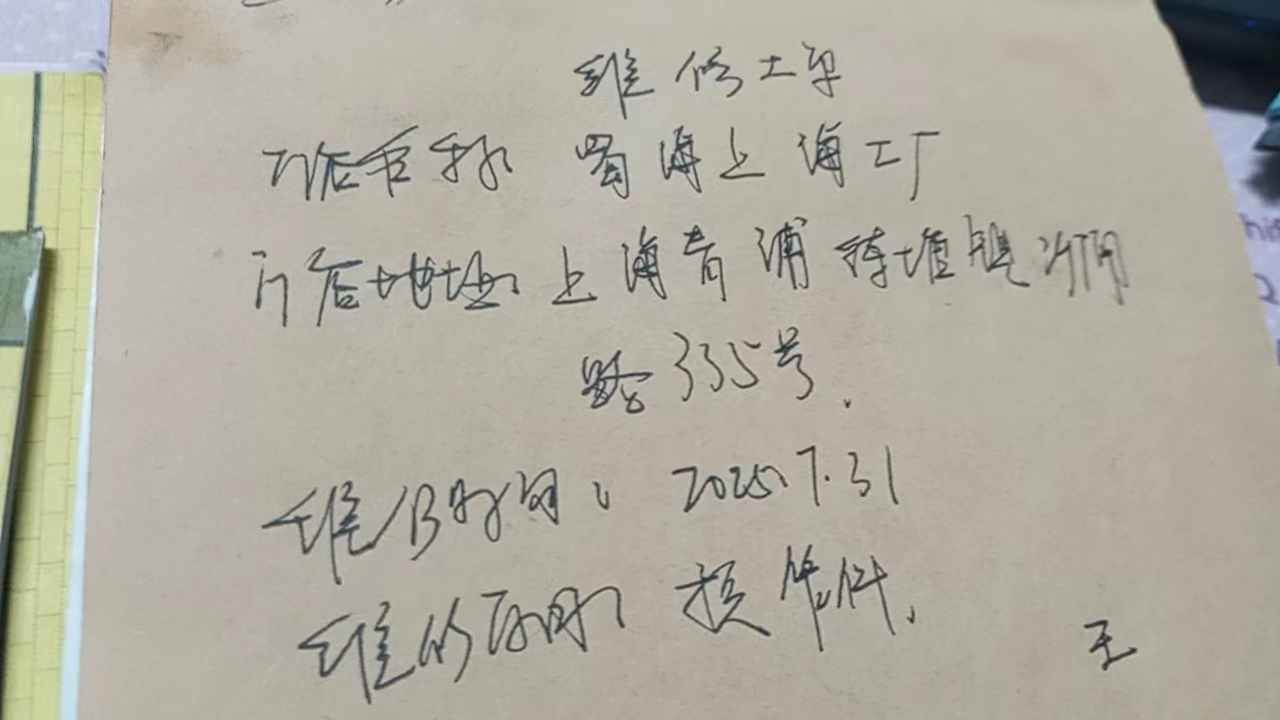 维修工单
门店名称: 蜀海上海工厂
门店地址: 上海青浦练塘镇
路335号.
维修时间: 2025.7.31
维修
王